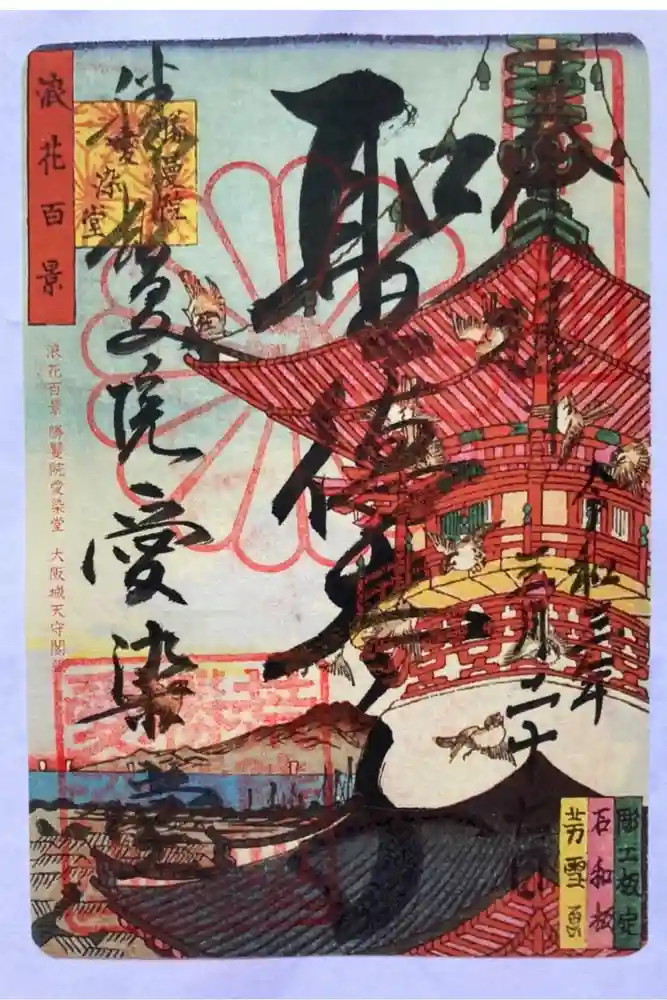 奉拝
令和三年
聖徳太子
勝鬘院愛染堂
浪花百景
勝鬘院
愛染堂
浪花百景 勝鬘院愛染堂 大阪城天守閣
彫工板定
石和板
芳雪画